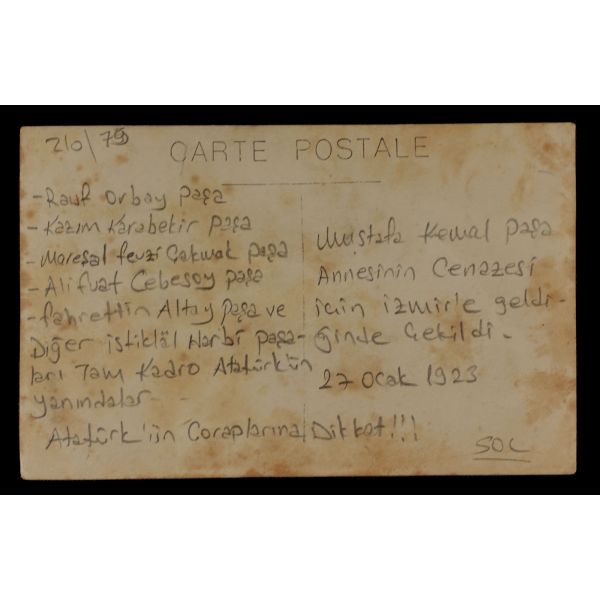 210/79
CARTE POSTALE
- Rauf Orbay Paşa
- Kazım Karabekir Paşa
- Mareşal fevzi Çakmak paşa
- Ali fuat Cebesoy paşa
- fahrettin Altay paşa ve
Diğer istiklâl Harbi paşa-
ları Tam Kadro Atatürk'ün
yanındalar
Mustafa Kemal Paşa
Annesinin Cenazesi
için izmir'e geldi-
ğinde Çekildi.
27 Ocak 1923
Atatürk'ün Çoraplarına Dikkat!!!
SOL